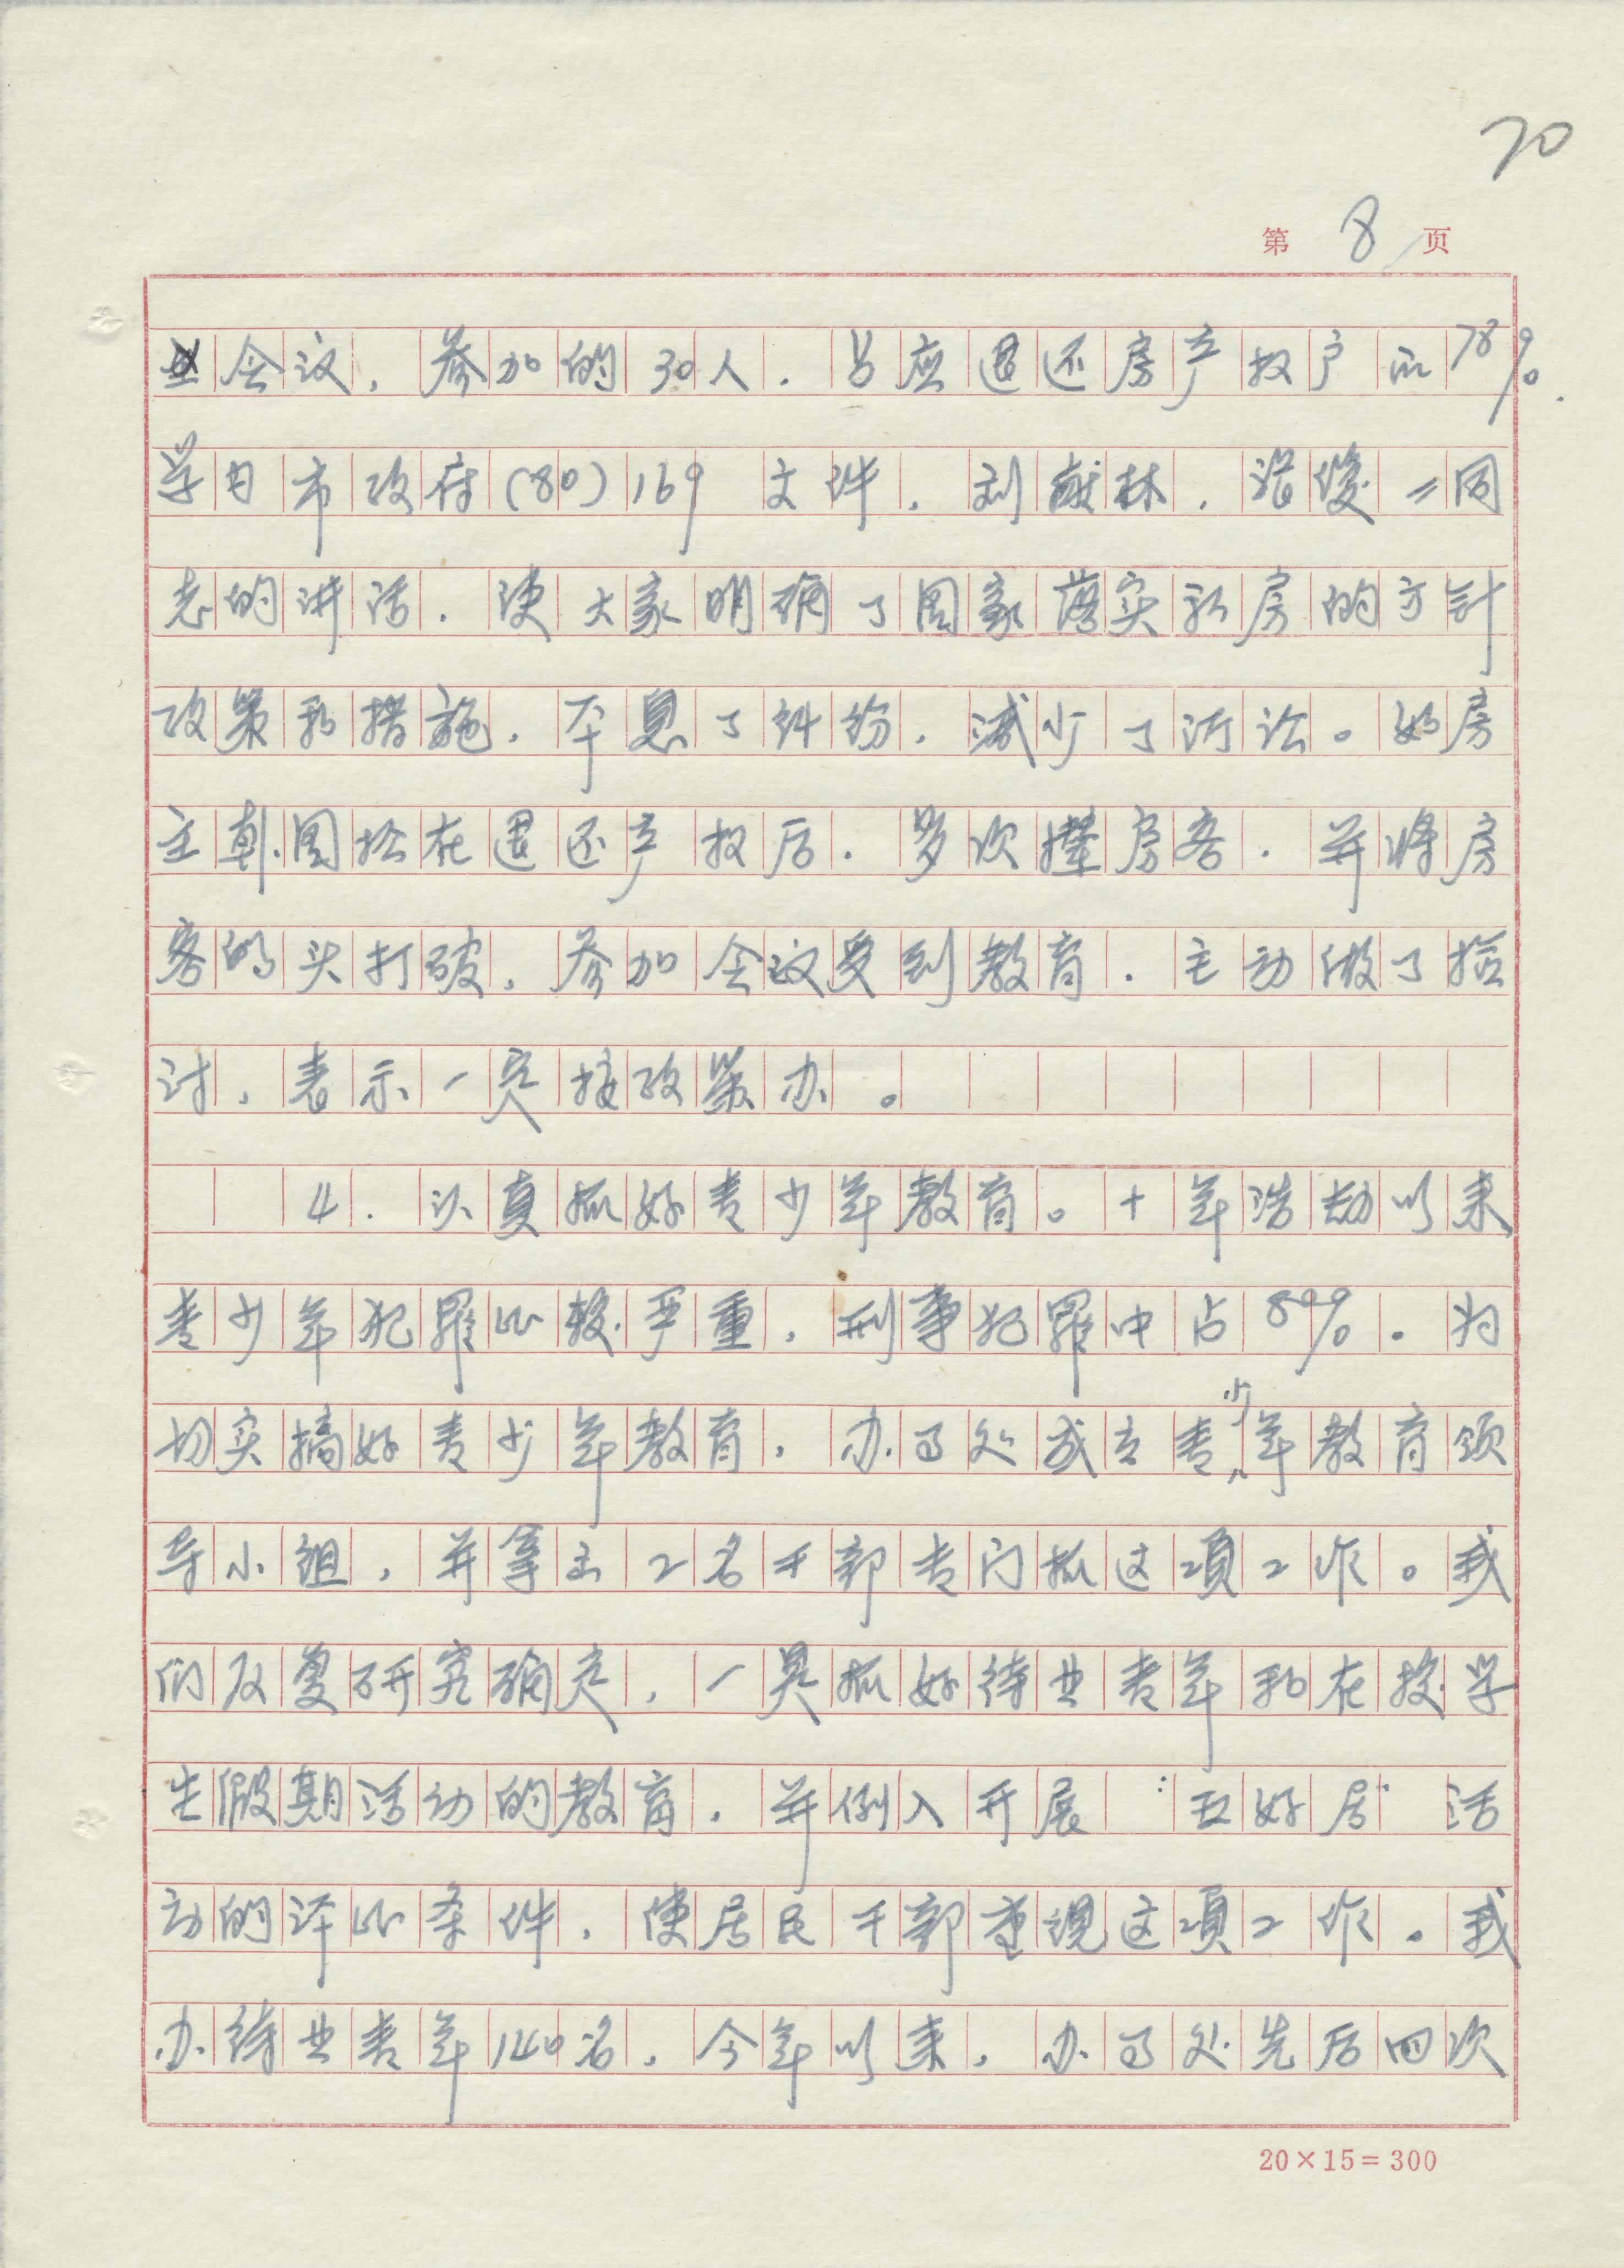 70
第 8 页
会议，参加的30人，占应退还房产权户的78%.
学习市政府(80)169 文件，刘献林，二同
志的讲话，使大家明确了国家落实私房的方针
政策和措施，平息了纠纷，减少了诉讼。如房
主韩国松在退还产权后，多次撵房客，并将房
客的头打破，参加会议受到教育，主动做了检
讨，表示一定按政策办。
4. 认真抓好青少年教育。十年浩劫以来
青少年犯罪比较严重，刑事犯罪中占80%。为
切实搞好青少年教育，办事处成立青少年教育领
导小组，并拿出2名干部专门抓这项工作。我
们反复研究确定，一是抓好待业青年和在校学
生假期活动的教育，并例入开展“五好居”活
动的评比条件，使居民干部重视这项工作。我
办待业青年140名，今年以来，办事处先后四次
20×15=300